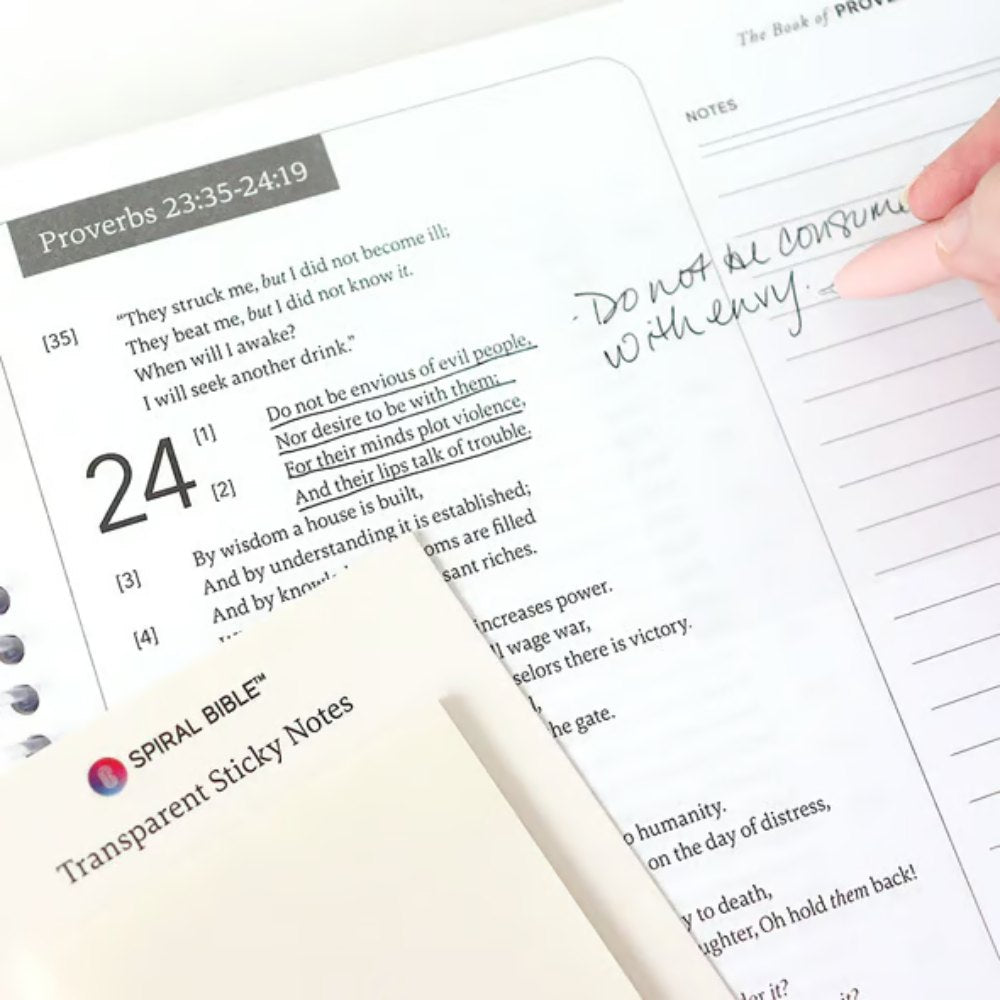 The Book of
NOTES
Proverbs 23:35-24:19
[35] "They struck me, but I did not become ill;
They beat me, but I did not know it.
When will I awake?
I will seek another drink."
24 [1] Do not be envious of evil people,
Nor desire to be with them;
[2] For their minds plot violence,
And their lips talk of trouble.
[3] By wisdom a house is built,
And by understanding it is established;
[4] And by
are filled
riches.
increases power.
wage war,
there is victory.
he gate.
humanity.
on the day of distress,
to death,
Oh hold them back!
it?
it?
Do not be
with envy.
SPIRAL BIBLE™
Transparent Sticky Notes